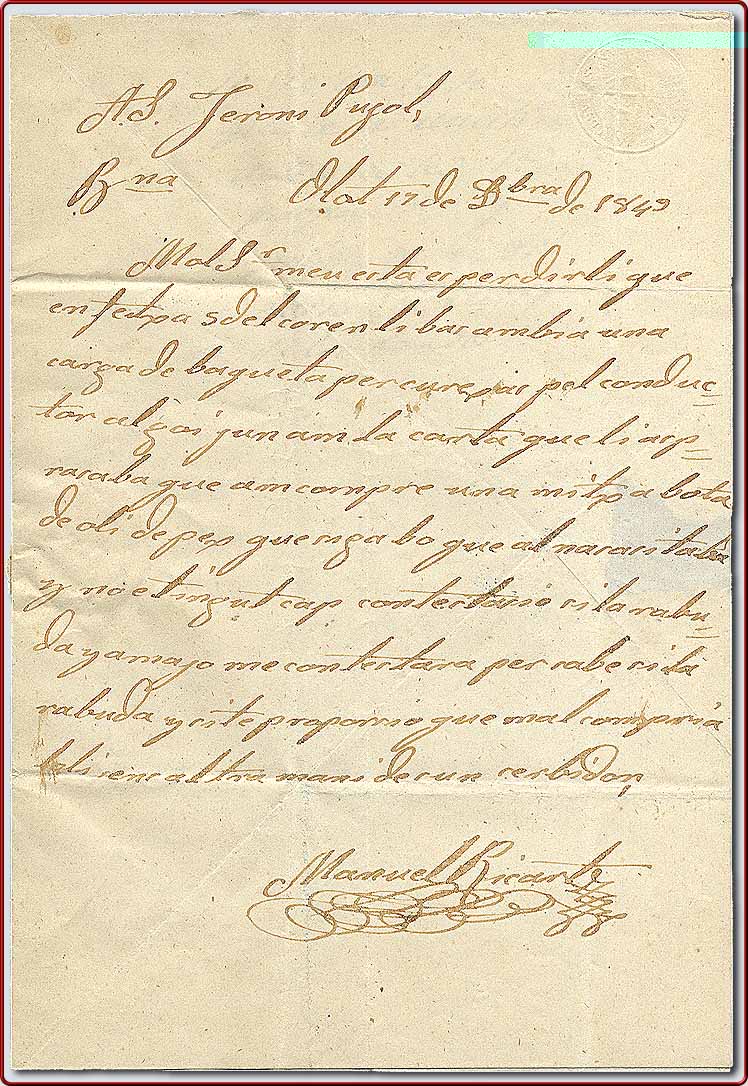 A. S. Jeroni Pujol,
Bna Olot 17 de 8bra de 1849
Mol Sr meu esta es per dirli que
en fetxa 5 del coren li bas ambia una
carga de baqueta per cure pel conduc=
tor al goi jun am la carta que li asp=
rasaba que am compre una mitxa bota
de oli de pex que siga bo que al nasasitaba
y no e tingut cap contestasio si la rabu=
da y a majo me contestara per sabe si la
rabuda y si te proporsio que mal compria
sens altra mani de un serbidor,
Manuel Ricart